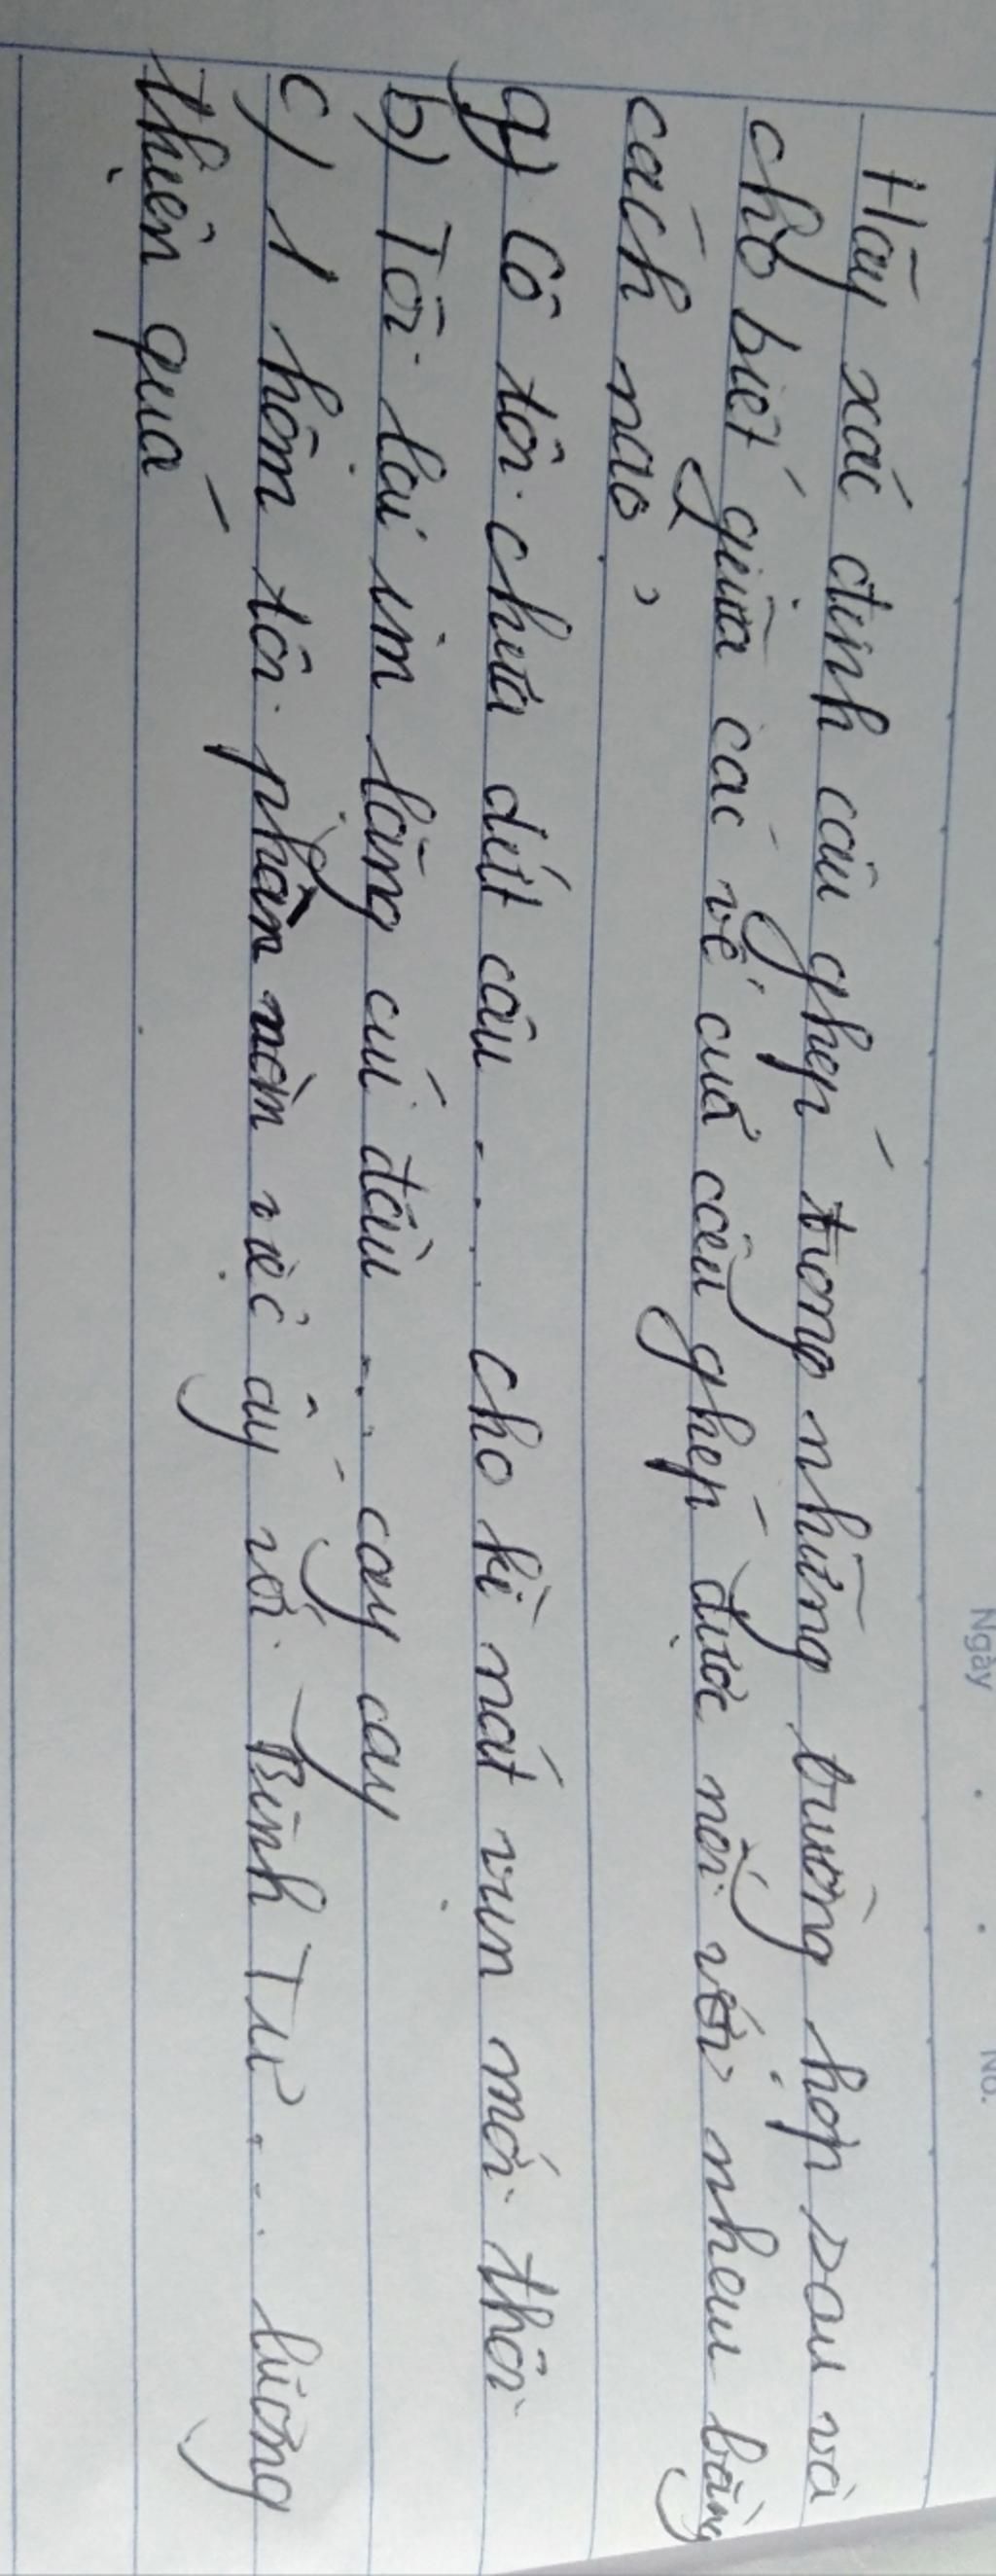 Ngày No.
Hãy xác định câu ghép trong những trường hợp sau và
cho biết giữa các vế của câu ghép được nối với nhau bằng
cách nào?
a) Cô tôi chưa dứt câu .... cho kì nát vụn mới thôi
b) Tôi lại im lặng cúi đầu ... cay cay
c) 1 hôm tôi phàn nàn việc ấy với Binh Tư .... lương
thiện quá